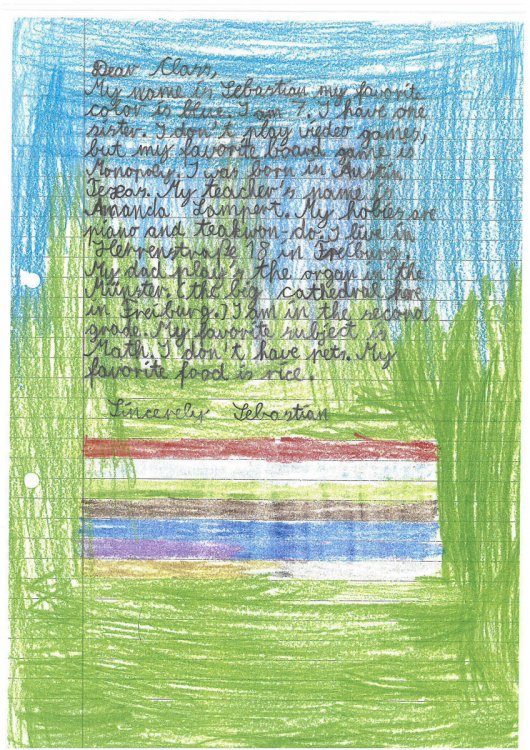 Dear Class,
My name is Sebastian my favorite
color is blue. I am 7. I have one
sister. I don't play vedeo games,
but my favorite board game is
Monopoly. I was born in Austin
Texas. My teacher's name is
Amanda Lampert. My hobies are
piano and teakwon-do. I live in
Herrenstraße 18 in Freiburg.
My dad play's the organ in the
Münster (the big cathedral here
in Freiburg.) I am in the second
grade. My favorite subject is
Math. I don't have pets. My
favorite food is rice.
Sincerely Sebastian